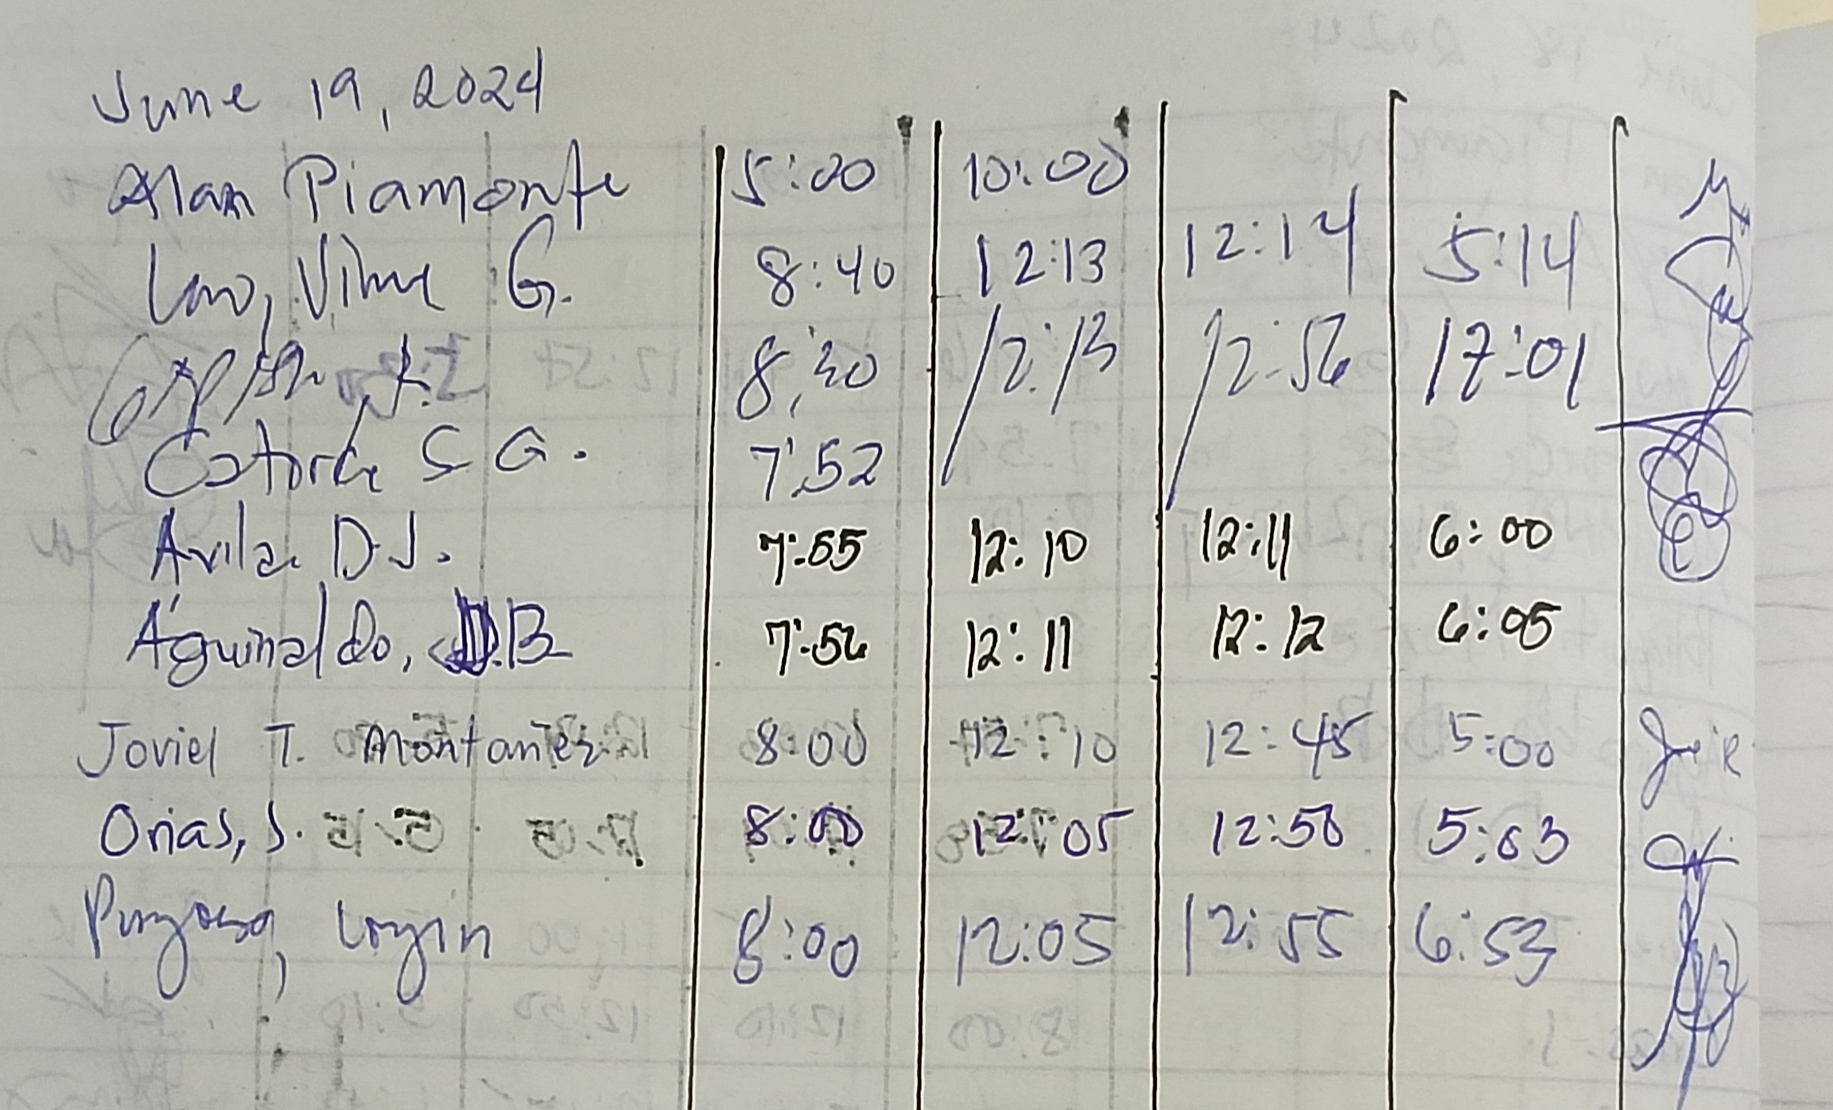 June 19, 2024
Alan Piamonte 5:00 10:00
G. 8:40 12:13 12:14 5:14
8:30 12:13 12:56 17:01
Catorce S G. 7:52
Avila D J. 7:55 12:10 12:11 6:00
Aguinaldo, B 7:56 12:11 12:12 6:05
Joviel T. Montañez 8:00 12:10 12:45 5:00
Orias, J. 8:00 12:05 12:50 5:03
8:00 12:05 12:55 6:53